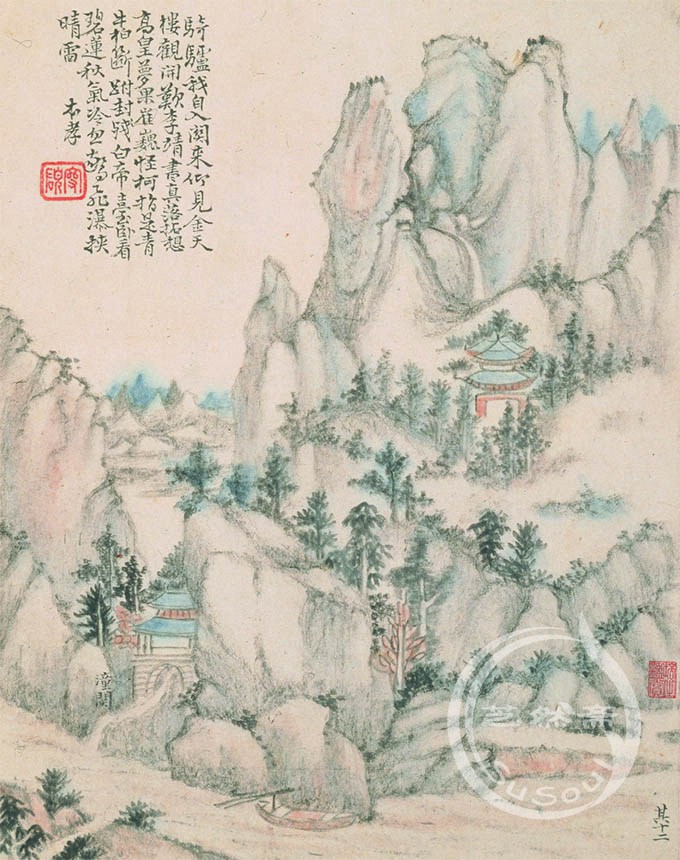 騎驢我自入関来仰見金天
樓觀開歎李靖書真落拓想
高皇夢果崔巍怪柯指是青
牛柏斷跗封殘白帝臺卧看
碧蓮秋氣冷忽驚飛瀑挾
晴雷 本孝
潼関
其十二
SuSoul